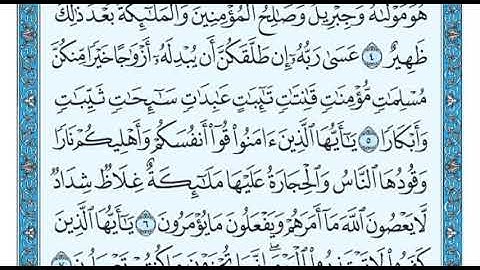 هُوَ مَوْلَىٰهُ وَجِبْرِيلُ وَصَٰلِحُ ٱلْمُؤْمِنِينَ وَٱلْمَلَٰٓئِكَةُ بَعْدَ ذَٰلِكَ
ظَهِيرٌ ٤ عَسَىٰ رَبُّهُۥٓ إِن طَلَّقَكُنَّ أَن يُبْدِلَهُۥٓ أَزْوَٰجًا خَيْرًا مِّنكُنَّ
مُسْلِمَٰتٍ مُّؤْمِنَٰتٍ قَٰنِتَٰتٍ تَٰٓئِبَٰتٍ عَٰبِدَٰتٍ سَٰٓئِحَٰتٍ ثَيِّبَٰتٍ
وَأَبْكَارًا ٥ يَٰٓأَيُّهَا ٱلَّذِينَ ءَامَنُوا۟ قُوٓا۟ أَنفُسَكُمْ وَأَهْلِيكُمْ نَارًا
وَقُودُهَا ٱلنَّاسُ وَٱلْحِجَارَةُ عَلَيْهَا مَلَٰٓئِكَةٌ غِلَاظٌ شِدَادٌ
لَّا يَعْصُونَ ٱللَّهَ مَآ أَمَرَهُمْ وَيَفْعَلُونَ مَا يُؤْمَرُونَ ٦ يَٰٓأَيُّهَا ٱلَّذِينَ